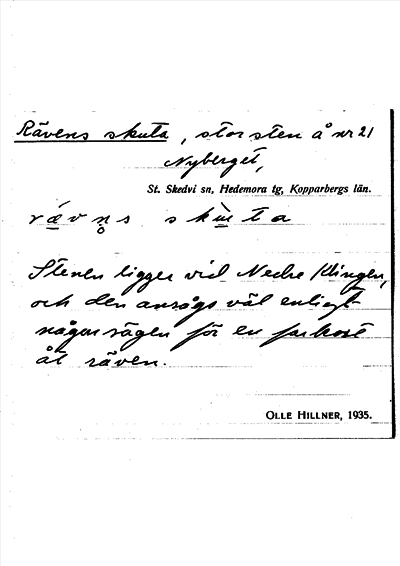 Rävens skuta, stor sten å nr 21
Nyberget,
St. Skedvi sn, Hedemora tg, Kopparbergs län.
rǽvn̥s skùta
Stenen ligger vid Nedre Klingen,
och den ansågs väl enligt
någon sägen för en farkost
åt räven.
OLLE HILLNER, 1935.